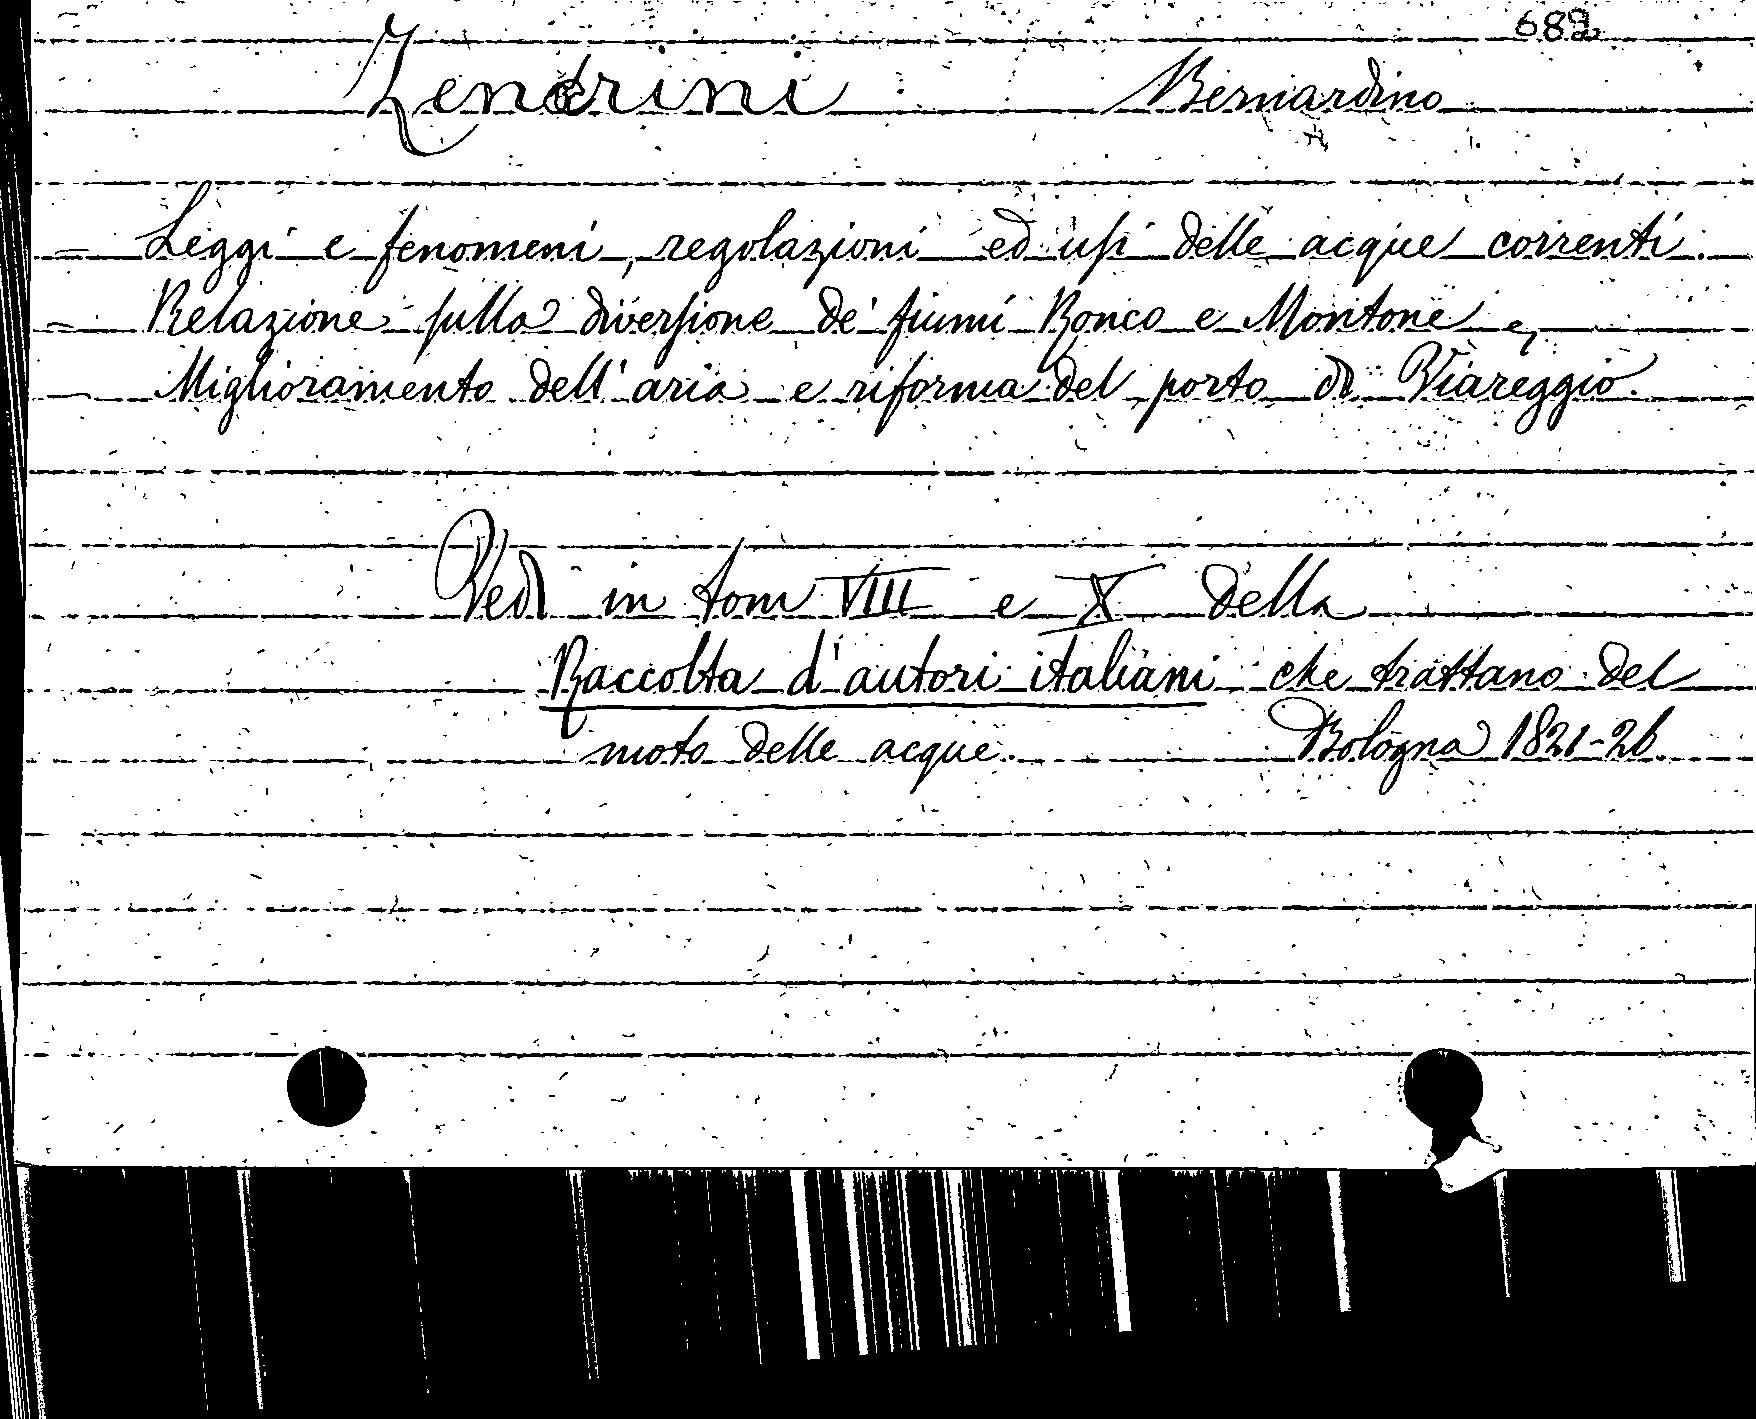 682
Zendrini Bernardino
= Leggi e fenomeni, regolazioni ed usi delle acque correnti.
= Relazione sulla diversione de' fiumi Ronco e Montone e,
- Miglioramento dell'aria e riforma del porto di Viareggio.
Vedi in tom VIII e X della
Raccolta d'autori italiani che trattano del
moto delle acque. Bologna 1821-26.